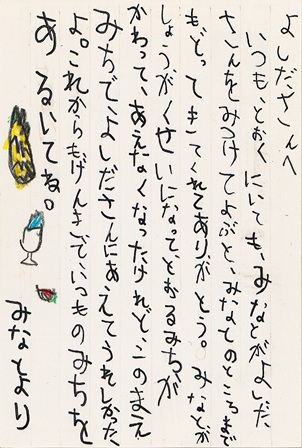 よしださんへ
いつもとおくにいても、みなとがよしだ
さんをみつけてよぶと、みなとのところまで
もどってきてくれてありがとう。みなとが
しょうがくせいになって、とおるみちが
かわって、あえなくなったけれど、このまえ
みちで、よしださんにあえてうれしかった
よ。これからもげんきで、いつものみちを
あるいてね。
みなとより